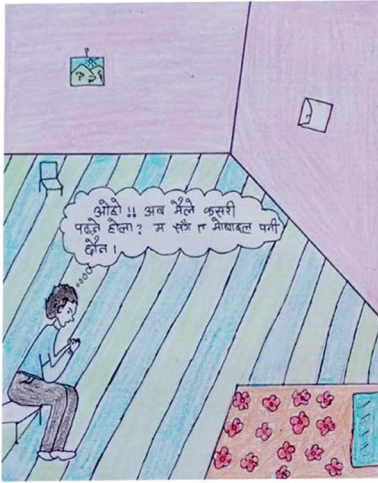 ओहो !! अब मैले कसरी
पढ्ने होला? म सँग त मोबाइल पनी
छैन।